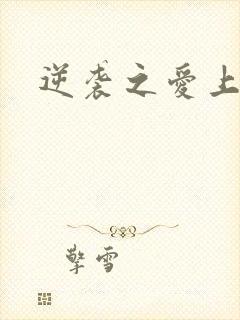 逆袭之爱上
擎雪